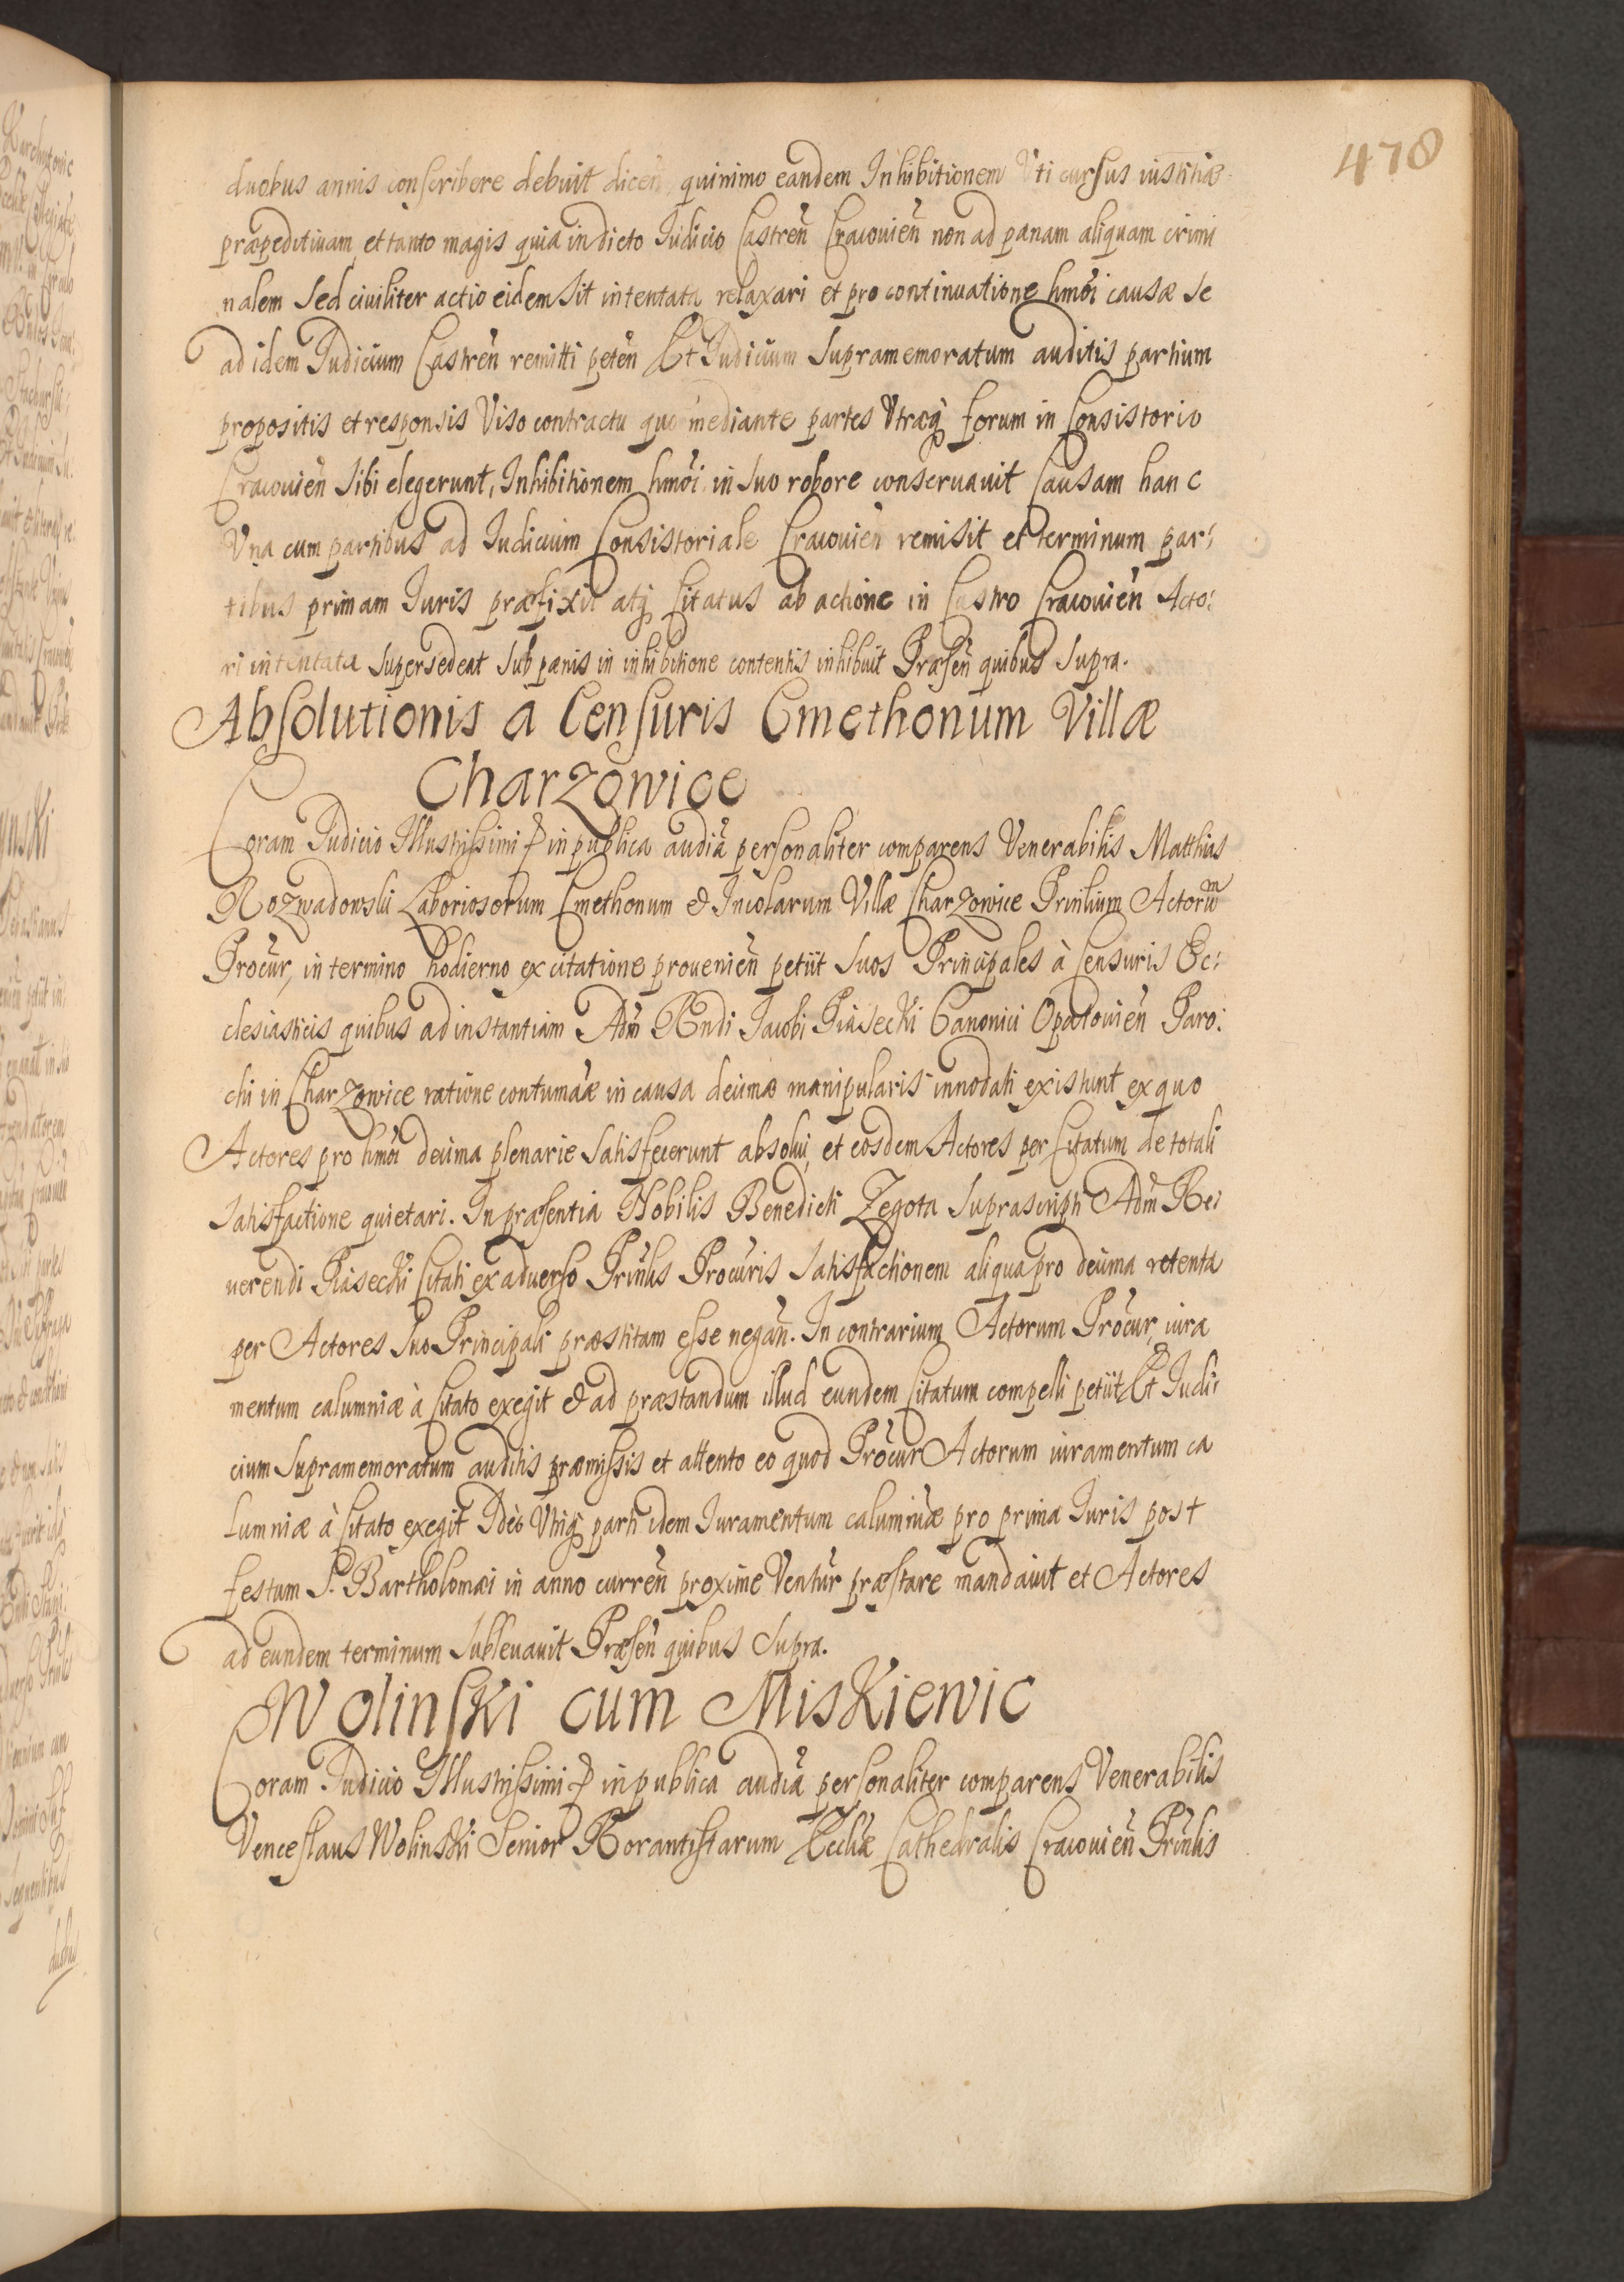 478
duobus annis conscribere debuit dicen̄ quinimo eandem Inhibitionem Vti cursus iustitiæ
præpeditiuam et tanto magis quia in dicto Iudicio Castren̄ Cracouien̄ non ad pænam aliquam crimi
nalem sed ciuiliter actio eidem sit intentata relaxari et pro continuatione hmōi causæ se
ad idem Iudicium Castren̄ remitti peten̄ Et Iudicium supramemoratum auditis partium
propositis et responsis Viso contractu quo mediante partes Vtræq̃ forum in Consistorio
Cracouien̄ sibi elegerunt, Inhibitionem hmōi in suo robore conseruauit Causam hanc
Vna cum partibus ad Iudicium Consistoriale Cracouien̄ remisit et terminum par:
tibus primam Iuris præfixit atq̃ Citatus ab actione in Castro Cracouien̄ Acto:
ri intentata supersedeat sub pænis in inhibitione contentis inhibuit Præsen̄ quibus supra.
Absolutionis a Censuris Cmethonum Villæ
Charzowice
Coram Iudicio Illustrissimi & in publica audiā personaliter comparens Venerabilis Matthias
Rozwadowski Laboriosorum Cmethonum & Incolarum Villæ Charzowice Prinlium Actorum
Procur̄, in termino hodierno ex citatione prouenien̄ petiit suos Principales à Censuris Ec:
clesiasticis quibus ad instantiam Adm̄ Rndi Iacobi Piasecki Canonici Opatouien̄ Paro:
chi in Charzowice ratione contumāæ in causa decimæ manipularis innodati existunt ex quo
Actores pro hmōi decima plenarie satisfecerunt absolui, et eosdem Actores per Citatum de totali
satisfactione quietari. In præsentia Nobilis Benedicti Zegota suprascripti Adm̄ Re:
uerendi Piasecki Citati ex aduerso Prinlis Procuris satisfactionem aliqua pro decima retenta
per Actores suo Principali præstitam esse negan̄. In contrarium Actorum Procur̄, iura
mentum calumniæ à Citato exegit & ad præstandum illud eundem Citatum compelli petiit Et Iudi:
cium supramemoratum auditis præmissis et attento eo quod Procur̄ Actorum iuramentum ca
lumniæ à Citato exegit Ideò Vtriq̃ parti idem Iuramentum calumniæ pro prima Iuris post
festum S. Bartholomæi in anno curren̄ proxime Ventur̄ præstare mandauit et Actores
ad eundem terminum subleuauit Præsen̄ quibus supra.
Wolinski cum Miskiewic
Coram Iudicio Illustrissimi & in publica audiā personaliter comparens Venerabilis
Venceslaus Wolinski Senior Rorantistarum Ecclīæ Cathedralis Cracouien̄ Prinlis